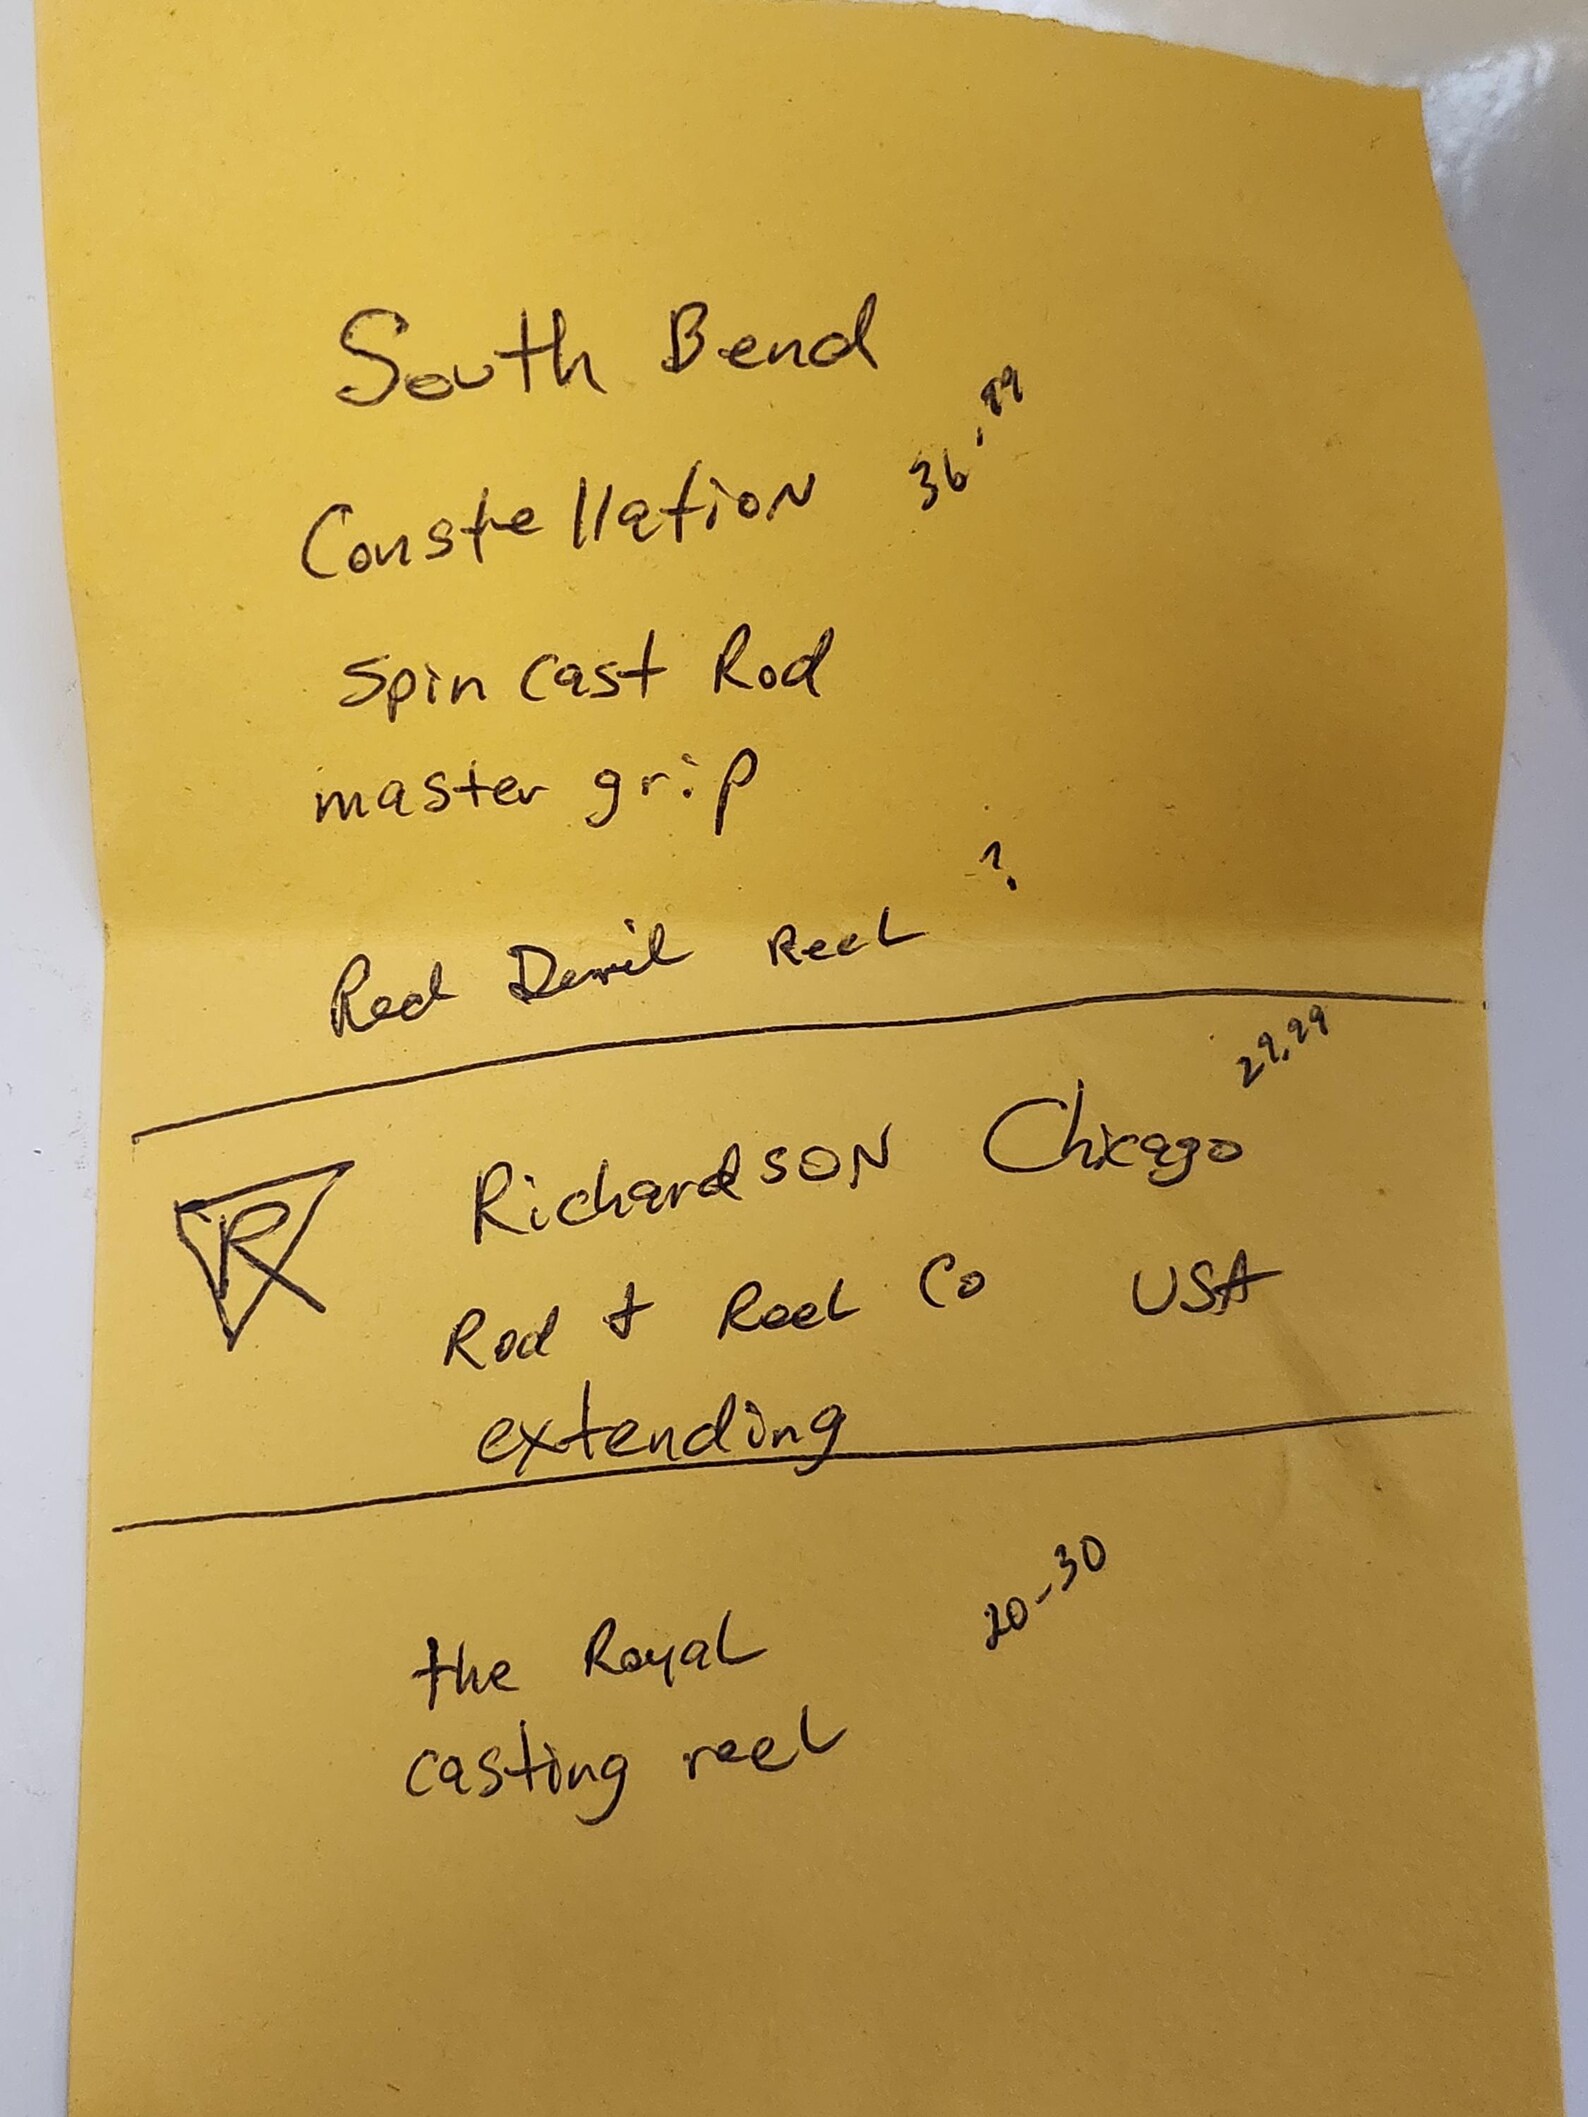 South Bend
Constellation 36.99
Spin cast Rod
master grip
Red Devil Reel ?
R Richardson Chicago 29.99
Rod & Reel Co USA
extending
the Royal 20-30
casting reel